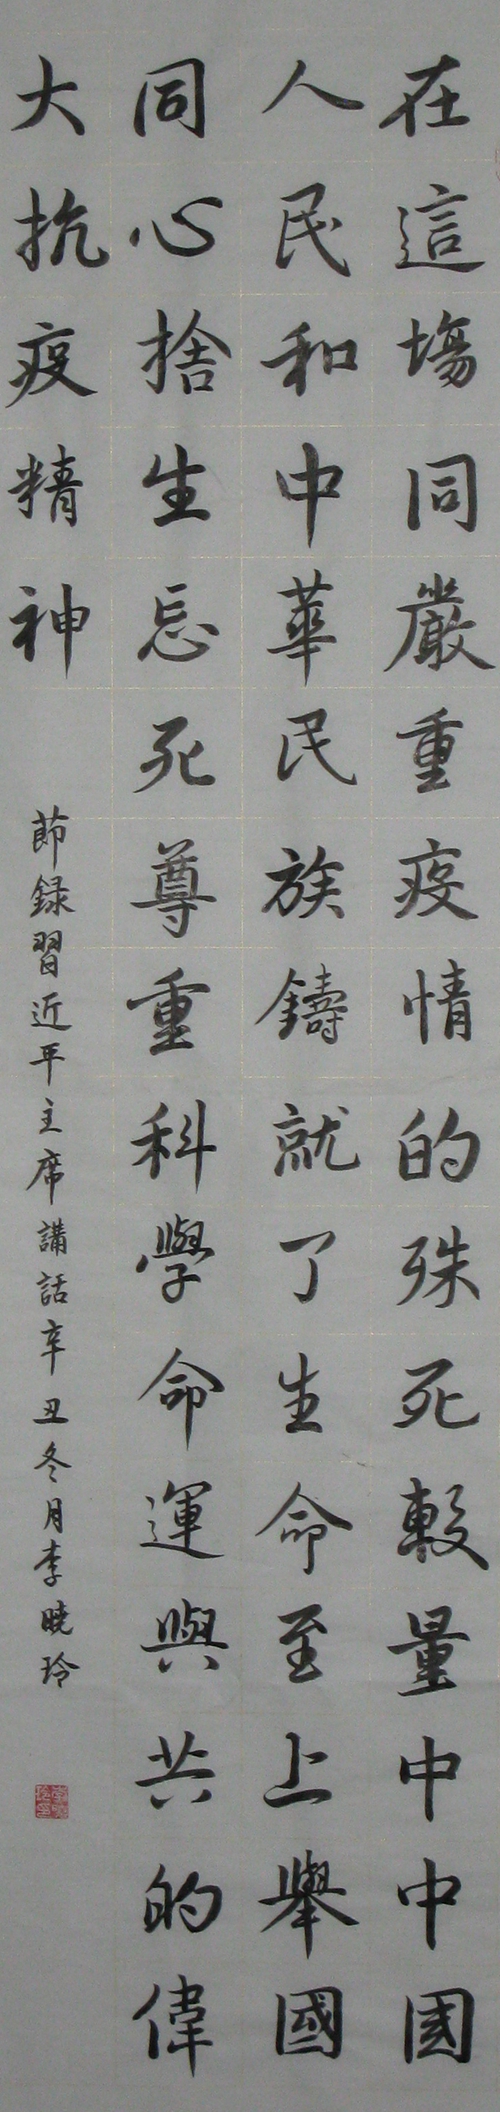 在這場同嚴重疫情的殊死較量中中國
人民和中華民族鑄就了生命至上舉國
同心捨生忘死尊重科學命運與共的偉
大抗疫精神
節録習近平主席講話辛丑冬月李曉玲